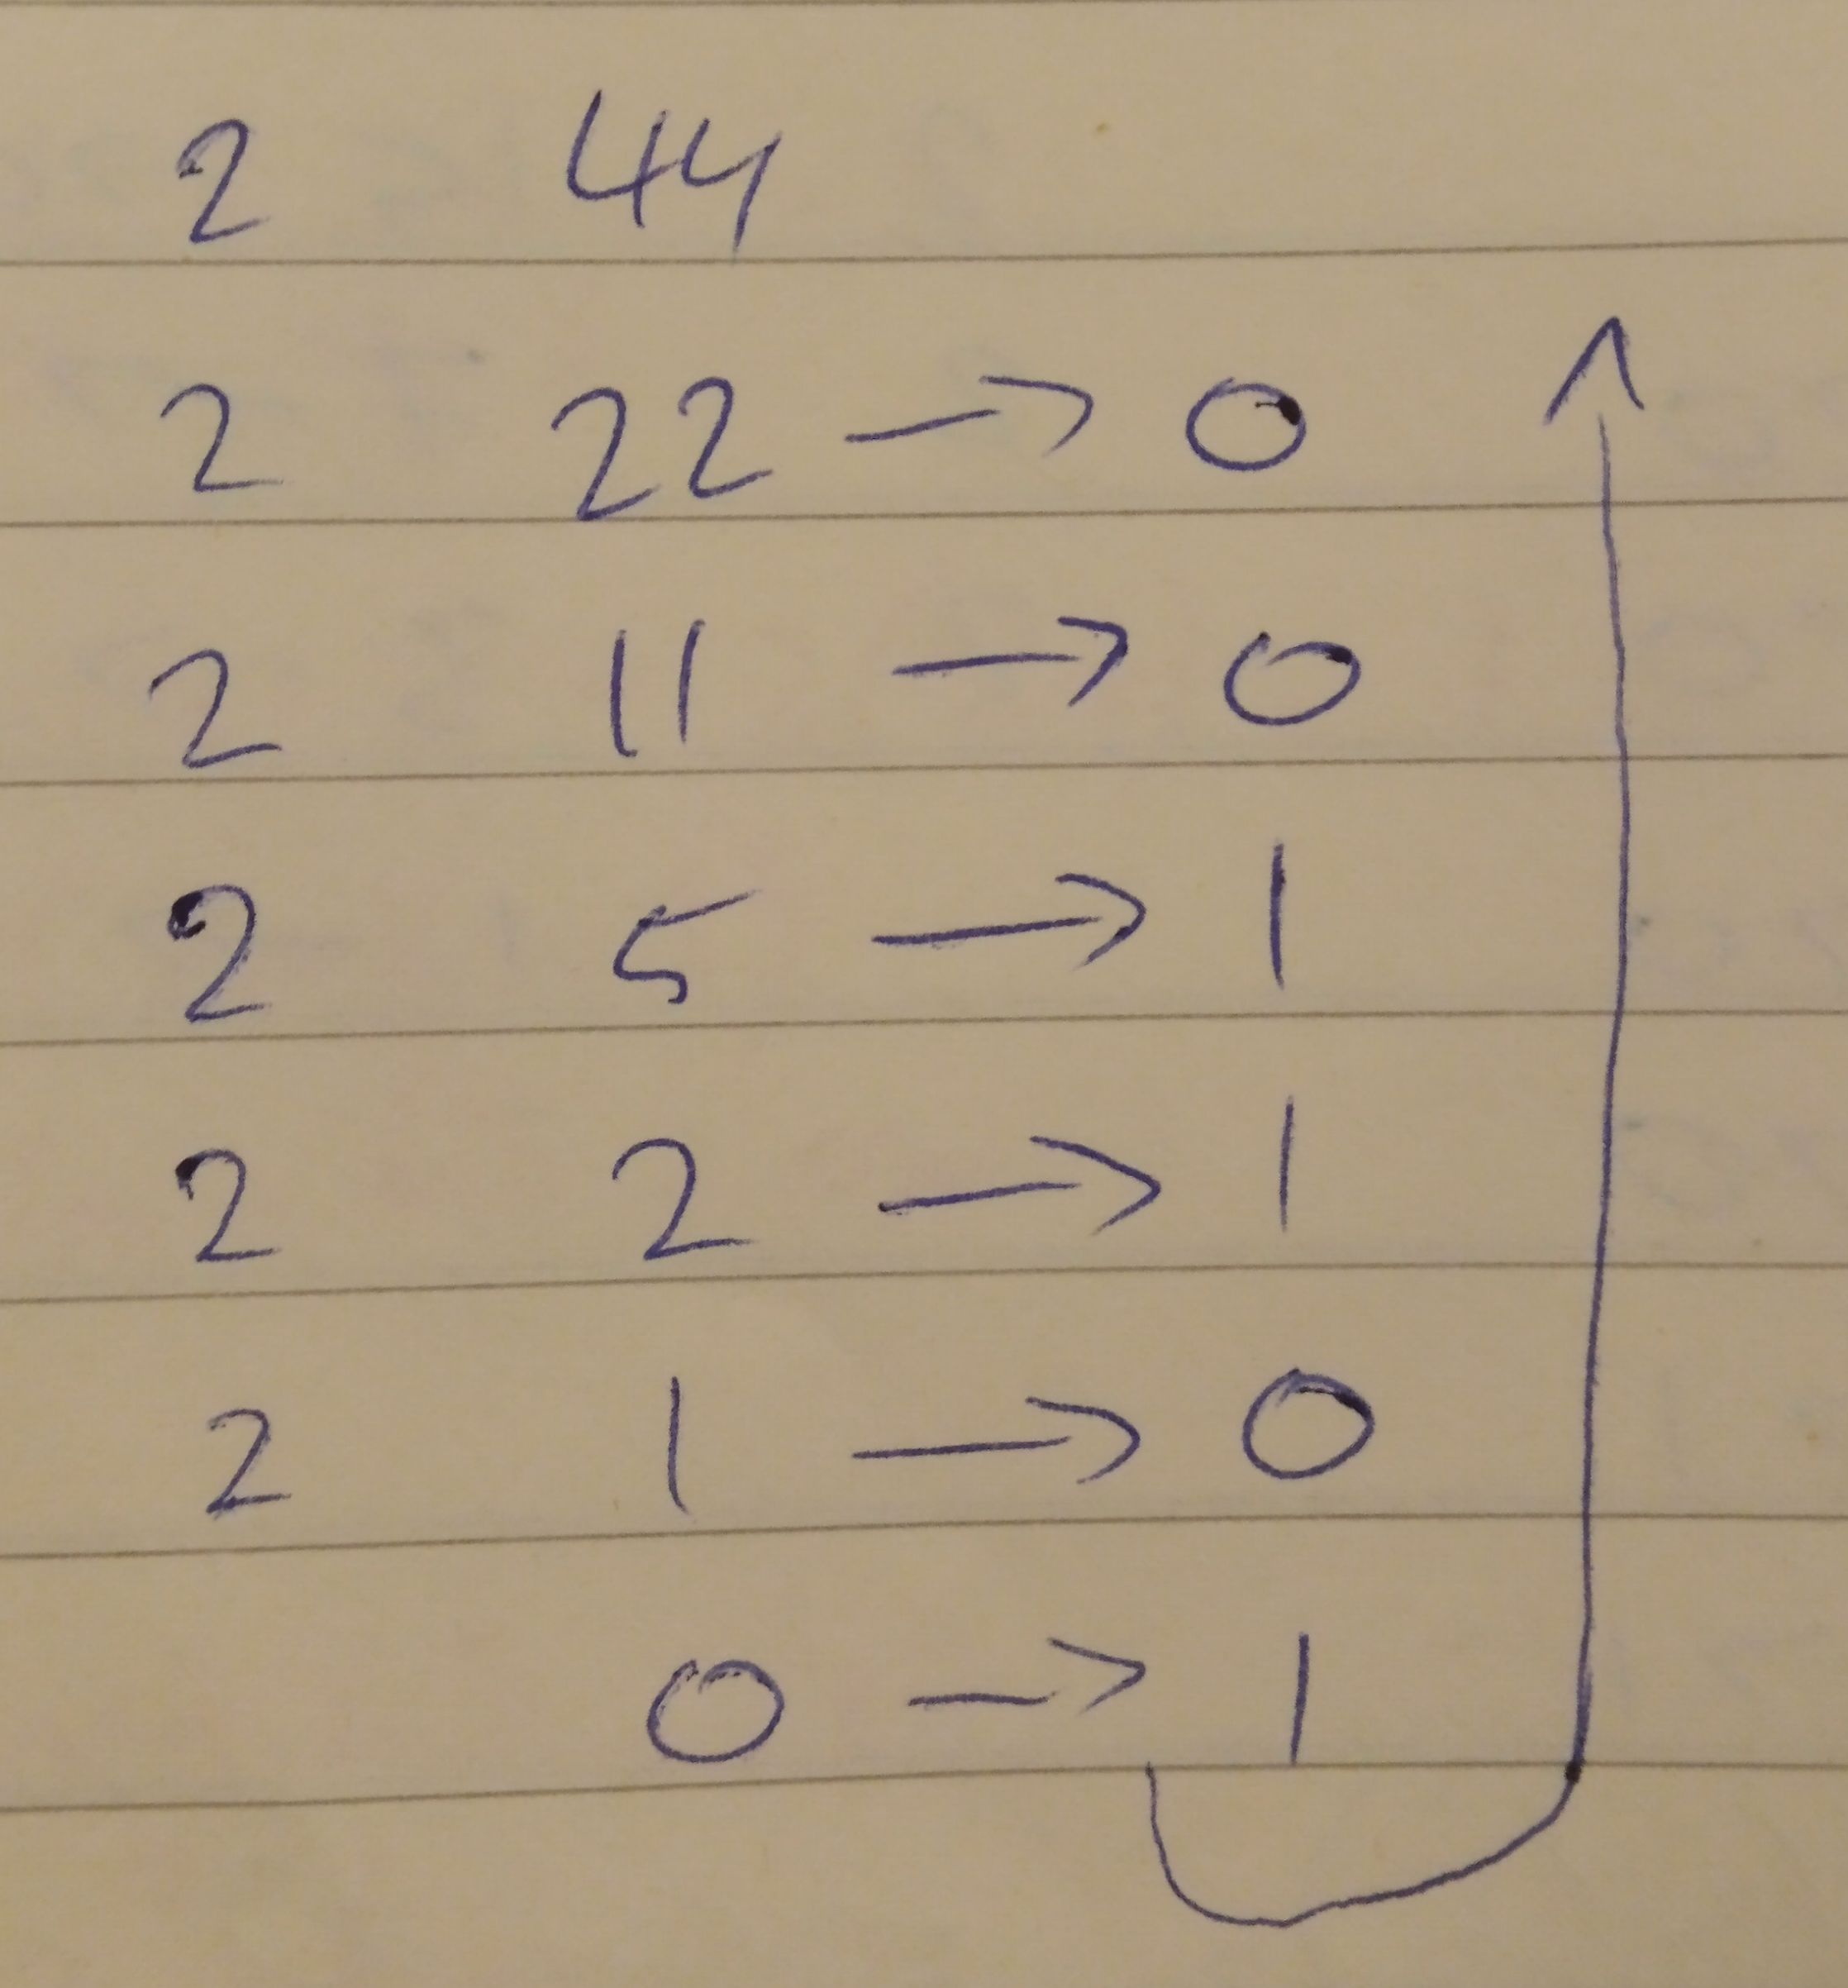 2 44
2 22 → 0
2 11 → 0
2 5 → 1
2 2 → 1
2 1 → 0
0 → 1